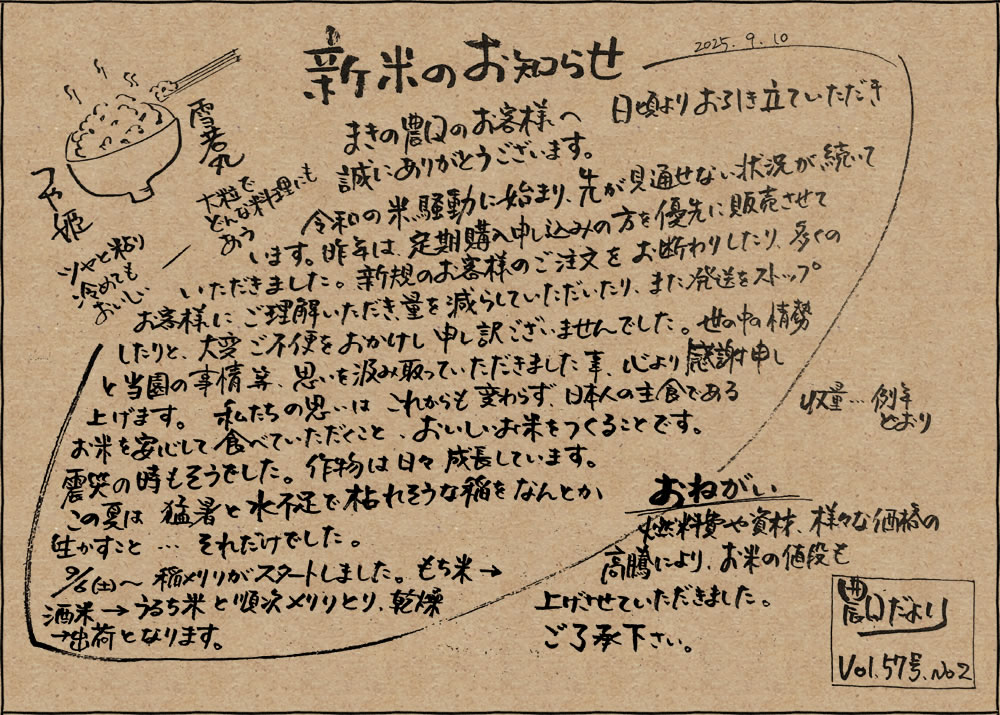 新米のお知らせ
2025.9.10
まきの農园のお客様へ
日頃よりお引き立ていただき
誠にありがとうございます。
令和の米騒動に始まり、先が見通せない状況が続いて
います。昨年は、定期購入申し込みの方を優先に販売させて
いただきました。新規のお客様のご注文をお断わりしたり、多くの
お客様にご理解いただき量を減らしていただいたり、また発送をストップ
したりと、大変ご不便をおかけし申し訳ございませんでした。世の中の情勢
と当園の事情等、思いを汲み取っていただきました事、心より感謝申し
上げます。私たちの思いはこれからも変わらず、日本人の主食である
お米を安心して食べていただくこと、おいしいお米をつくることです。
震災の時もそうでした。作物は日々成長しています。
この夏は猛暑と水不足で枯れそうな稲をなんとか
生かすこと…それだけでした。
9/6(土)〜稲刈りがスタートしました。もち米→
酒米→うるち米と順次刈りとり、乾燥
→出荷となります。
つや姫
ツヤと粘り
冷めても
おいしい
雪若丸
大粒で
どんな料理にも
あう
収量…例年
どおり
おねがい
燃料費や資材、様々な価格の
高騰により、お米の値段も
上げさせていただきました。
ご了承下さい。
農口だより
Vol.57号.No2